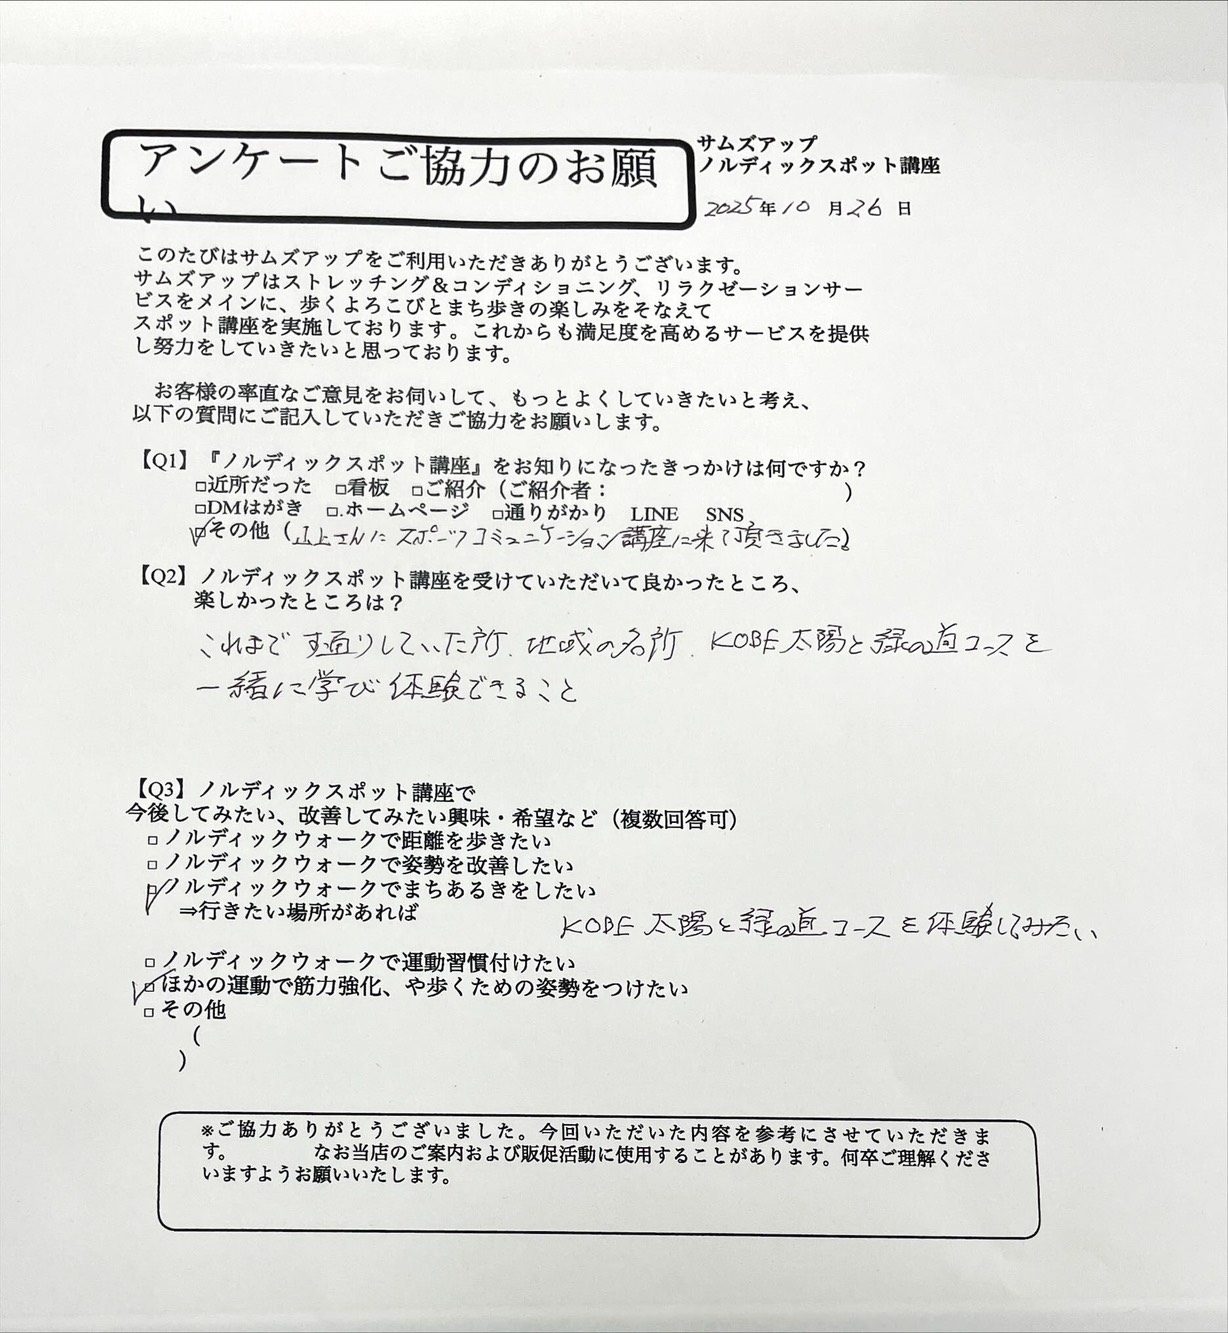 アンケートご協力のお願
い
サムズアップ
ノルディックスポット講座
2025年10月26日
このたびはサムズアップをご利用いただきありがとうございます。
サムズアップはストレッチング&コンディショニング、リラクゼーションサー
ビスをメインに、歩くよろこびとまち歩きの楽しみをそなえて
スポット講座を実施しております。これからも満足度を高めるサービスを提供
し努力をしていきたいと思っております。
お客様の率直なご意見をお伺いして、もっとよくしていきたいと考え、
以下の質問にご記入していただきご協力をお願いします。
【Q1】『ノルディックスポット講座』をお知りになったきっかけは何ですか？
□近所だった □看板 □ご紹介（ご紹介者： ）
□DMはがき □.ホームページ □通りがかり LINE SNS
☑その他（山上さんにスポーツコミュニケーション講座に来て頂きました）
【Q2】ノルディックスポット講座を受けていただいて良かったところ、
楽しかったところは？
これまで素通りしていた所、地域の名所、KOBE太陽と緑の道コースを
一緒に学び体験できること
【Q3】ノルディックスポット講座で
今後してみたい、改善してみたい興味・希望など（複数回答可）
□ノルディックウォークで距離を歩きたい
□ノルディックウォークで姿勢を改善したい
☑ノルディックウォークでまちあるきをしたい
⇒行きたい場所があれば
KOBE太陽と緑の道コースを体験してみたい
□ノルディックウォークで運動習慣付けたい
☑ほかの運動で筋力強化、や歩くための姿勢をつけたい
□その他
（
）
※ご協力ありがとうございました。今回いただいた内容を参考にさせていただきま
す。 なお当店のご案内および販促活動に使用することがあります。何卒ご理解くださ
いますようお願いいたします。